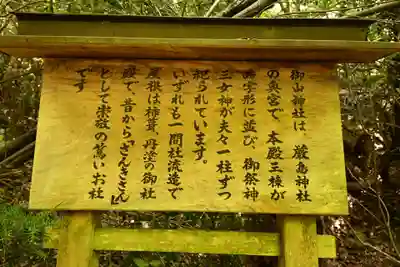 御山神社は、厳島神社
の奥宮で、本殿三棟が
鼎字形に並び、御祭神
三女神が夫々一柱ずつ
祀られています。
いずれも一間社流造で
屋根は檜葺、丹塗の御社
殿で、昔から「さんきさん」
として崇敬の篤いお社
です